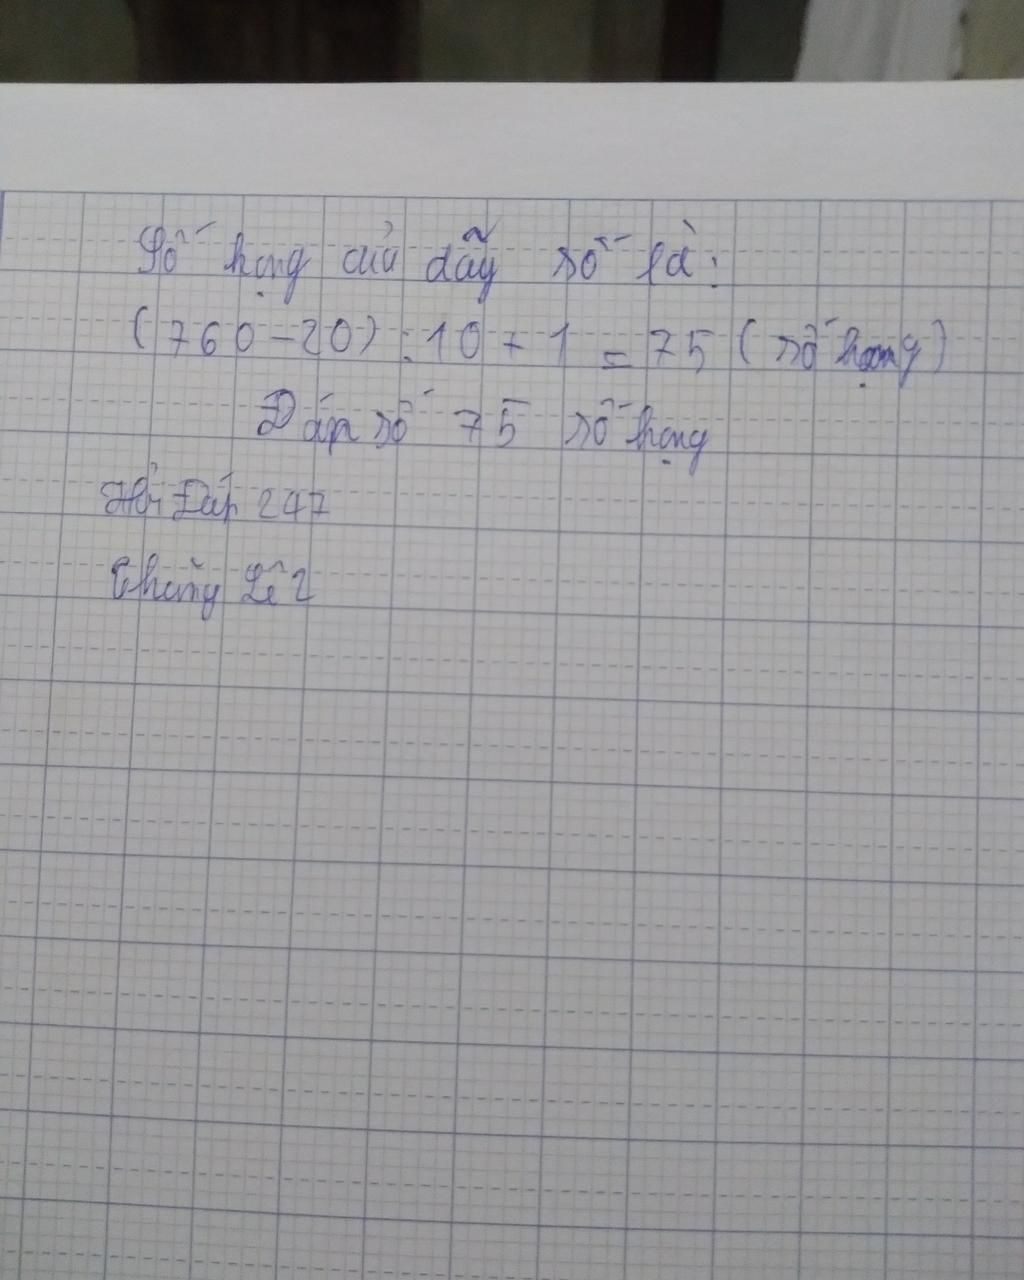 Số hạng của dãy số là:
(760-20):10+1=75 (số hạng)
Đáp số 75 số hạng
Hỏi Đáp 247
Lê 2